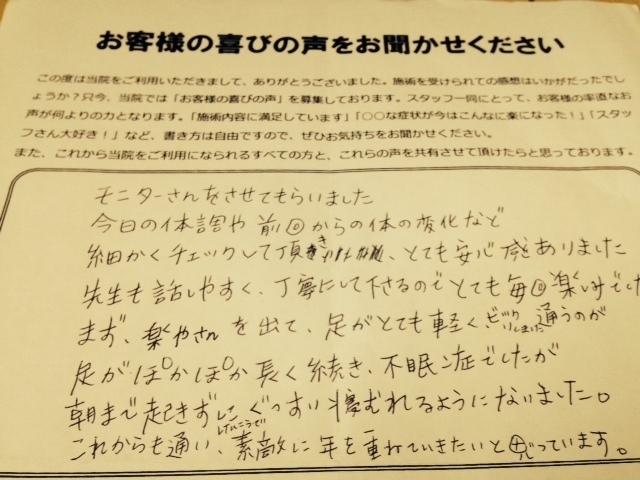 お客様の喜びの声をお聞かせください
この度は当院をご利用いただきまして、ありがとうございました。施術を受けられての感想はいかがだったでし
ょうか？只今、当院では「お客様の喜びの声」を募集しております。スタッフ一同にとって、お客様の率直なお
声が何よりの力となります。「施術内容に満足しています」「○○な症状が今はこんなに楽になった！」「スタッ
フさん大好き！」など、書き方は自由ですので、ぜひお気持ちをお聞かせください。
また、これから当院をご利用になられるすべての方と、これらの声を共有させて頂けたらと思っております。
モニターさんをさせてもらいました
今日の体調や前回からの体の変化など
細かくチェックして頂き、とても安心感ありました
先生も話しやすく、丁寧にして下さるのでとても毎回楽しみでした
まず、楽やさんを出て、足がとても軽く、ビックリしました 通うのが
足がぽかぽか長く続き、不眠症でしたが
朝まで起きず ぐっすり寝むれるようになりました。
これからも通い、素敵に年を重ねていきたいと思っています。